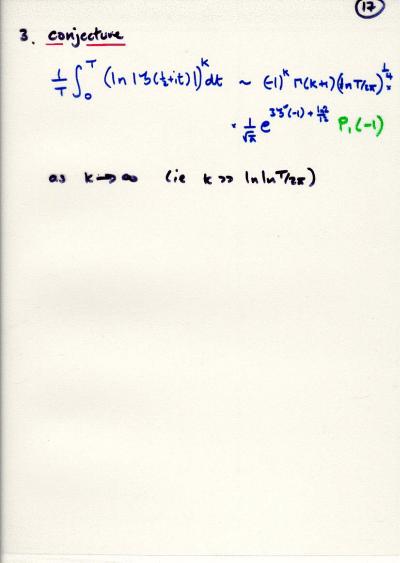 17
3. conjecture
1/T ∫₀ᵀ (ln |ζ(½+it)|)ᵏ dt ~ (-1)ᵏ Γ(k+1) (ln T/2π)^¼ ×
× 1/√π e^{3ζ'(-1) + ln2/12} P₁(-1)
as k→∞ (ie k >> ln ln T/2π)